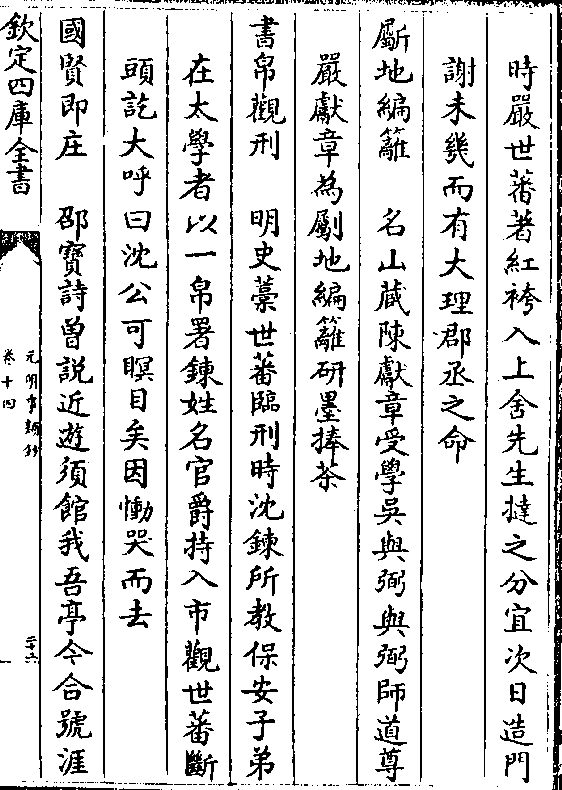 時嚴世蕃著紅袴入上舍先生撻之分宜次日造門
謝未幾而有大理郡丞之命
斸地編籬　名山藏陳獻章受學吳與弼與弼師道尊
嚴獻章為斸地編籬研墨捧茶
書帛觀刑　明史藁世蕃臨刑時沈鍊所教保安子弟
在太學者以一帛署鍊姓名官爵持入市觀世蕃斷
頭訖大呼曰沈公可瞑目矣因慟哭而去
國賢即庄　邵寶詩曾説近遊須館我吾亭今合號涯
欽定四庫全書
元明事類鈔
卷十四
二十六